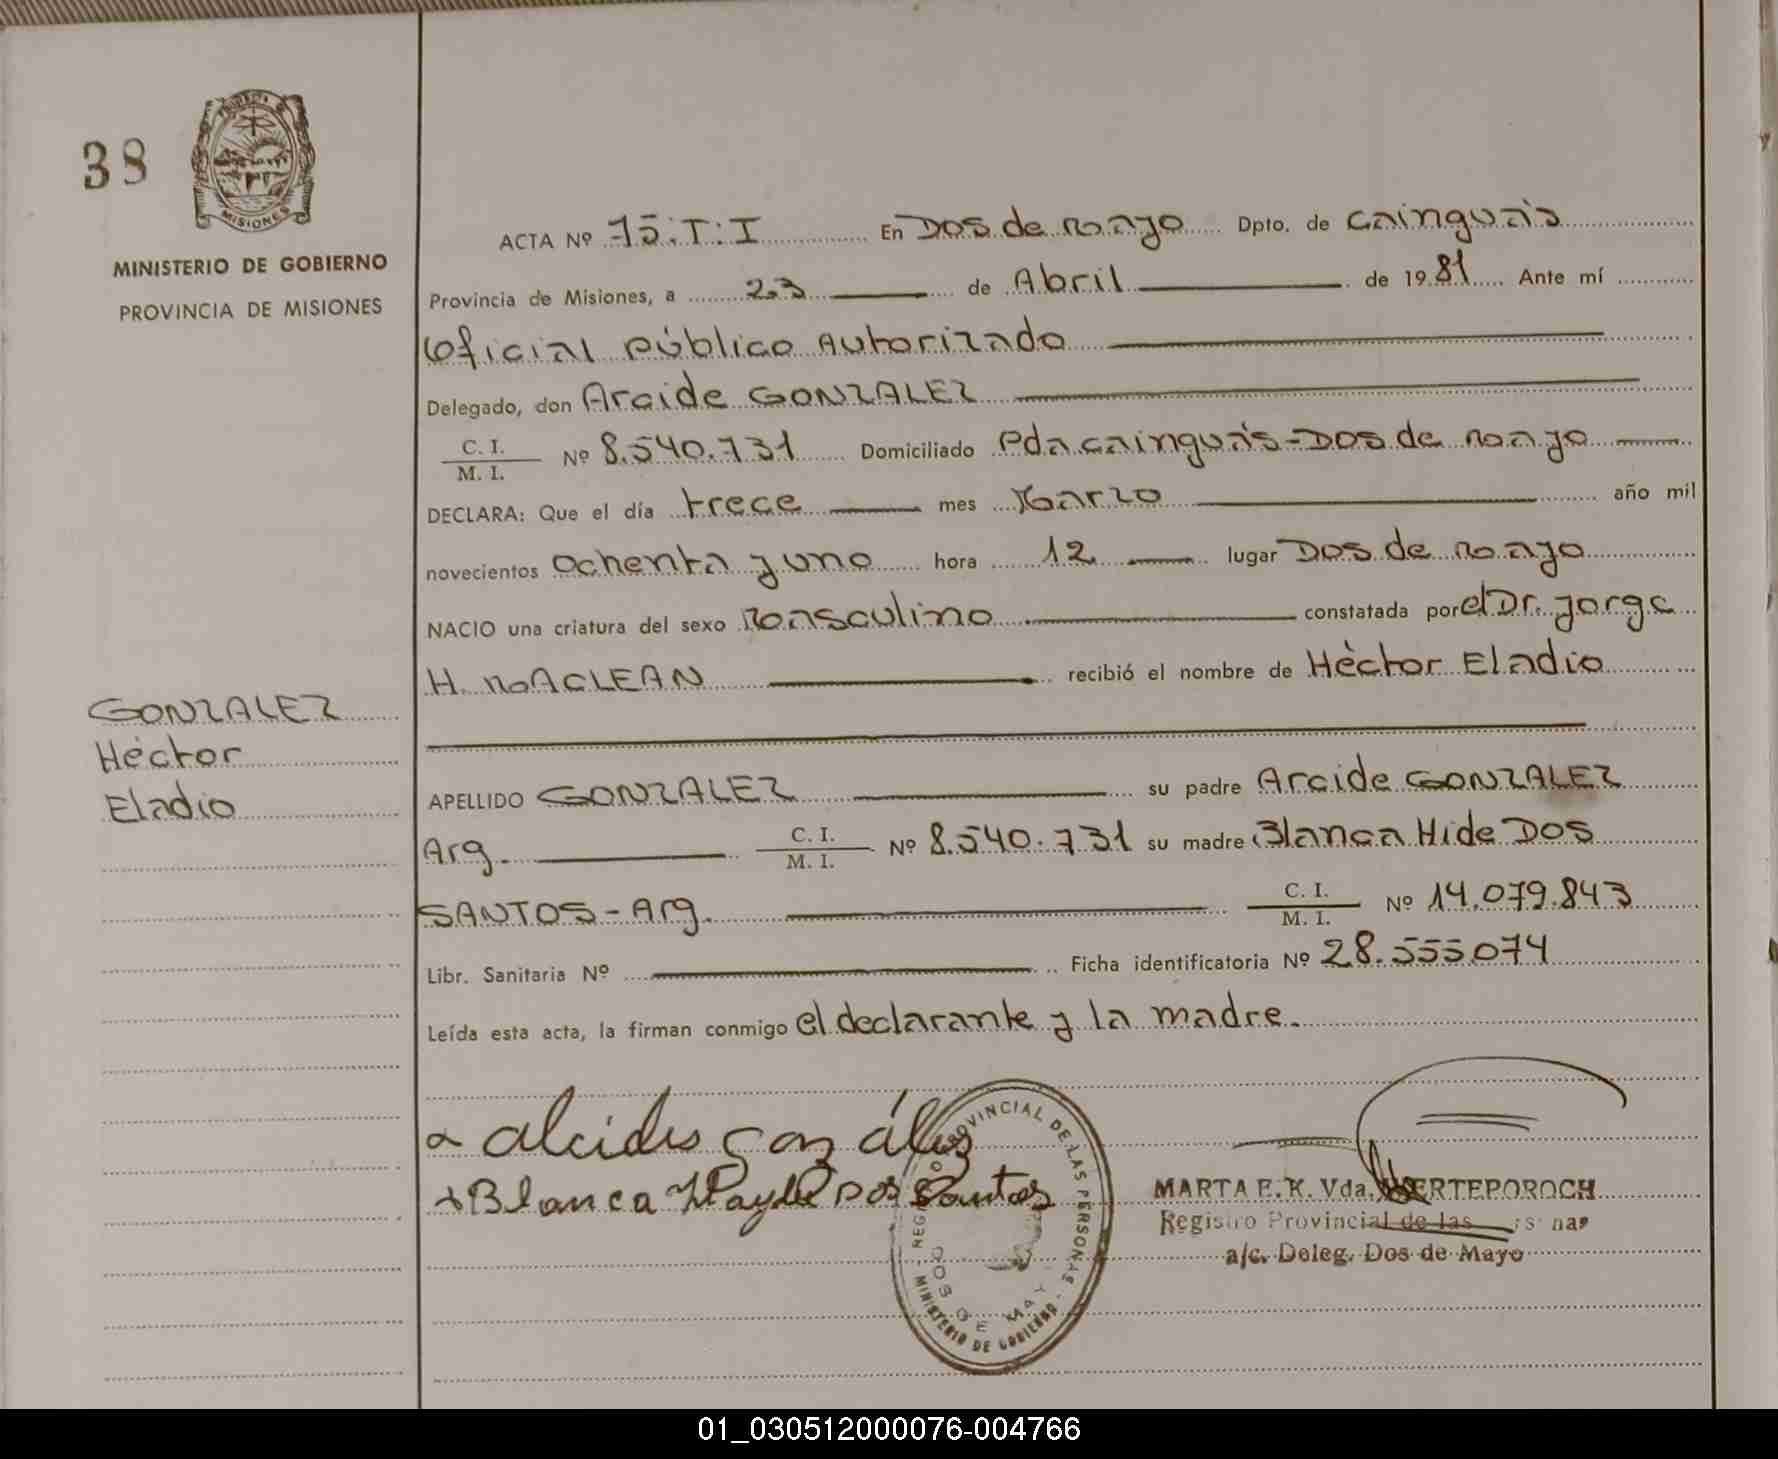 38
PROVINCIA DE
MISIONES
MINISTERIO DE GOBIERNO
PROVINCIA DE MISIONES
ACTA Nº 75.T:I En Dos de mayo Dpto. de Cainguás
Provincia de Misiones, a 23 de Abril de 1981 Ante mí
Oficial Público Autorizado
Delegado, don Arcide GONZALEZ
C. I.
M. I. Nº 8.540.731 Domiciliado Pda cainguás-Dos de mayo
DECLARA: Que el día trece mes Marzo año mil
novecientos ochenta y uno hora 12 lugar Dos de mayo
NACIO una criatura del sexo Masculino constatada por el Dr. Jorge
H. MACLEAN recibió el nombre de Hèctor Eladio
GONZALEZ
Héctor
Eladio
APELLIDO GONZALEZ su padre Arcide GONZALEZ
Arg. C. I.
M. I. Nº 8.540.731 su madre Blanca Hide DOS
SANTOS-Arg. C. I.
M. I. Nº 14.079.843
Libr. Sanitaria Nº Ficha identificatoria Nº 28.555074
Leída esta acta, la firman conmigo el declarante y la madre.
alcides gonzáles
x Blanca Hayde Dos Santos
REGISTRO PROVINCIAL DE LAS PERSONAS
DOS DE MAYO
MINISTERIO DE GOBIERNO
MARTA E. K. Vda.
Registro Provincial de las
a/c. Deleg. Dos de Mayo
01_030512000076-004766